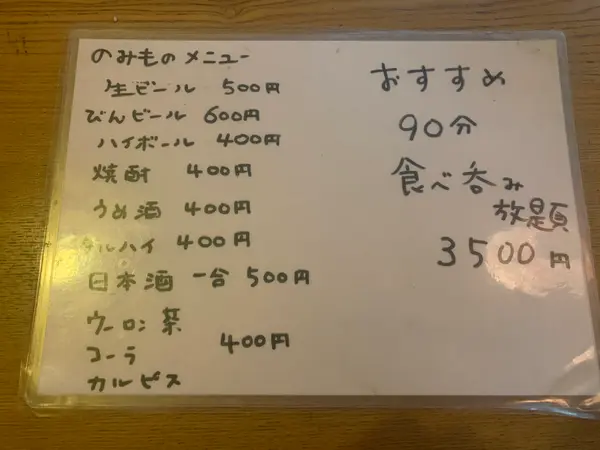 のみもの メニュー
生ビール 500円
びんビール 600円
ハイボール 400円
焼酎 400円
うめ酒 400円
タルハイ 400円
日本酒 一合 500円
ウーロン茶
コーラ 400円
カルピス
おすすめ
90分
食べ呑み
放題
3500円